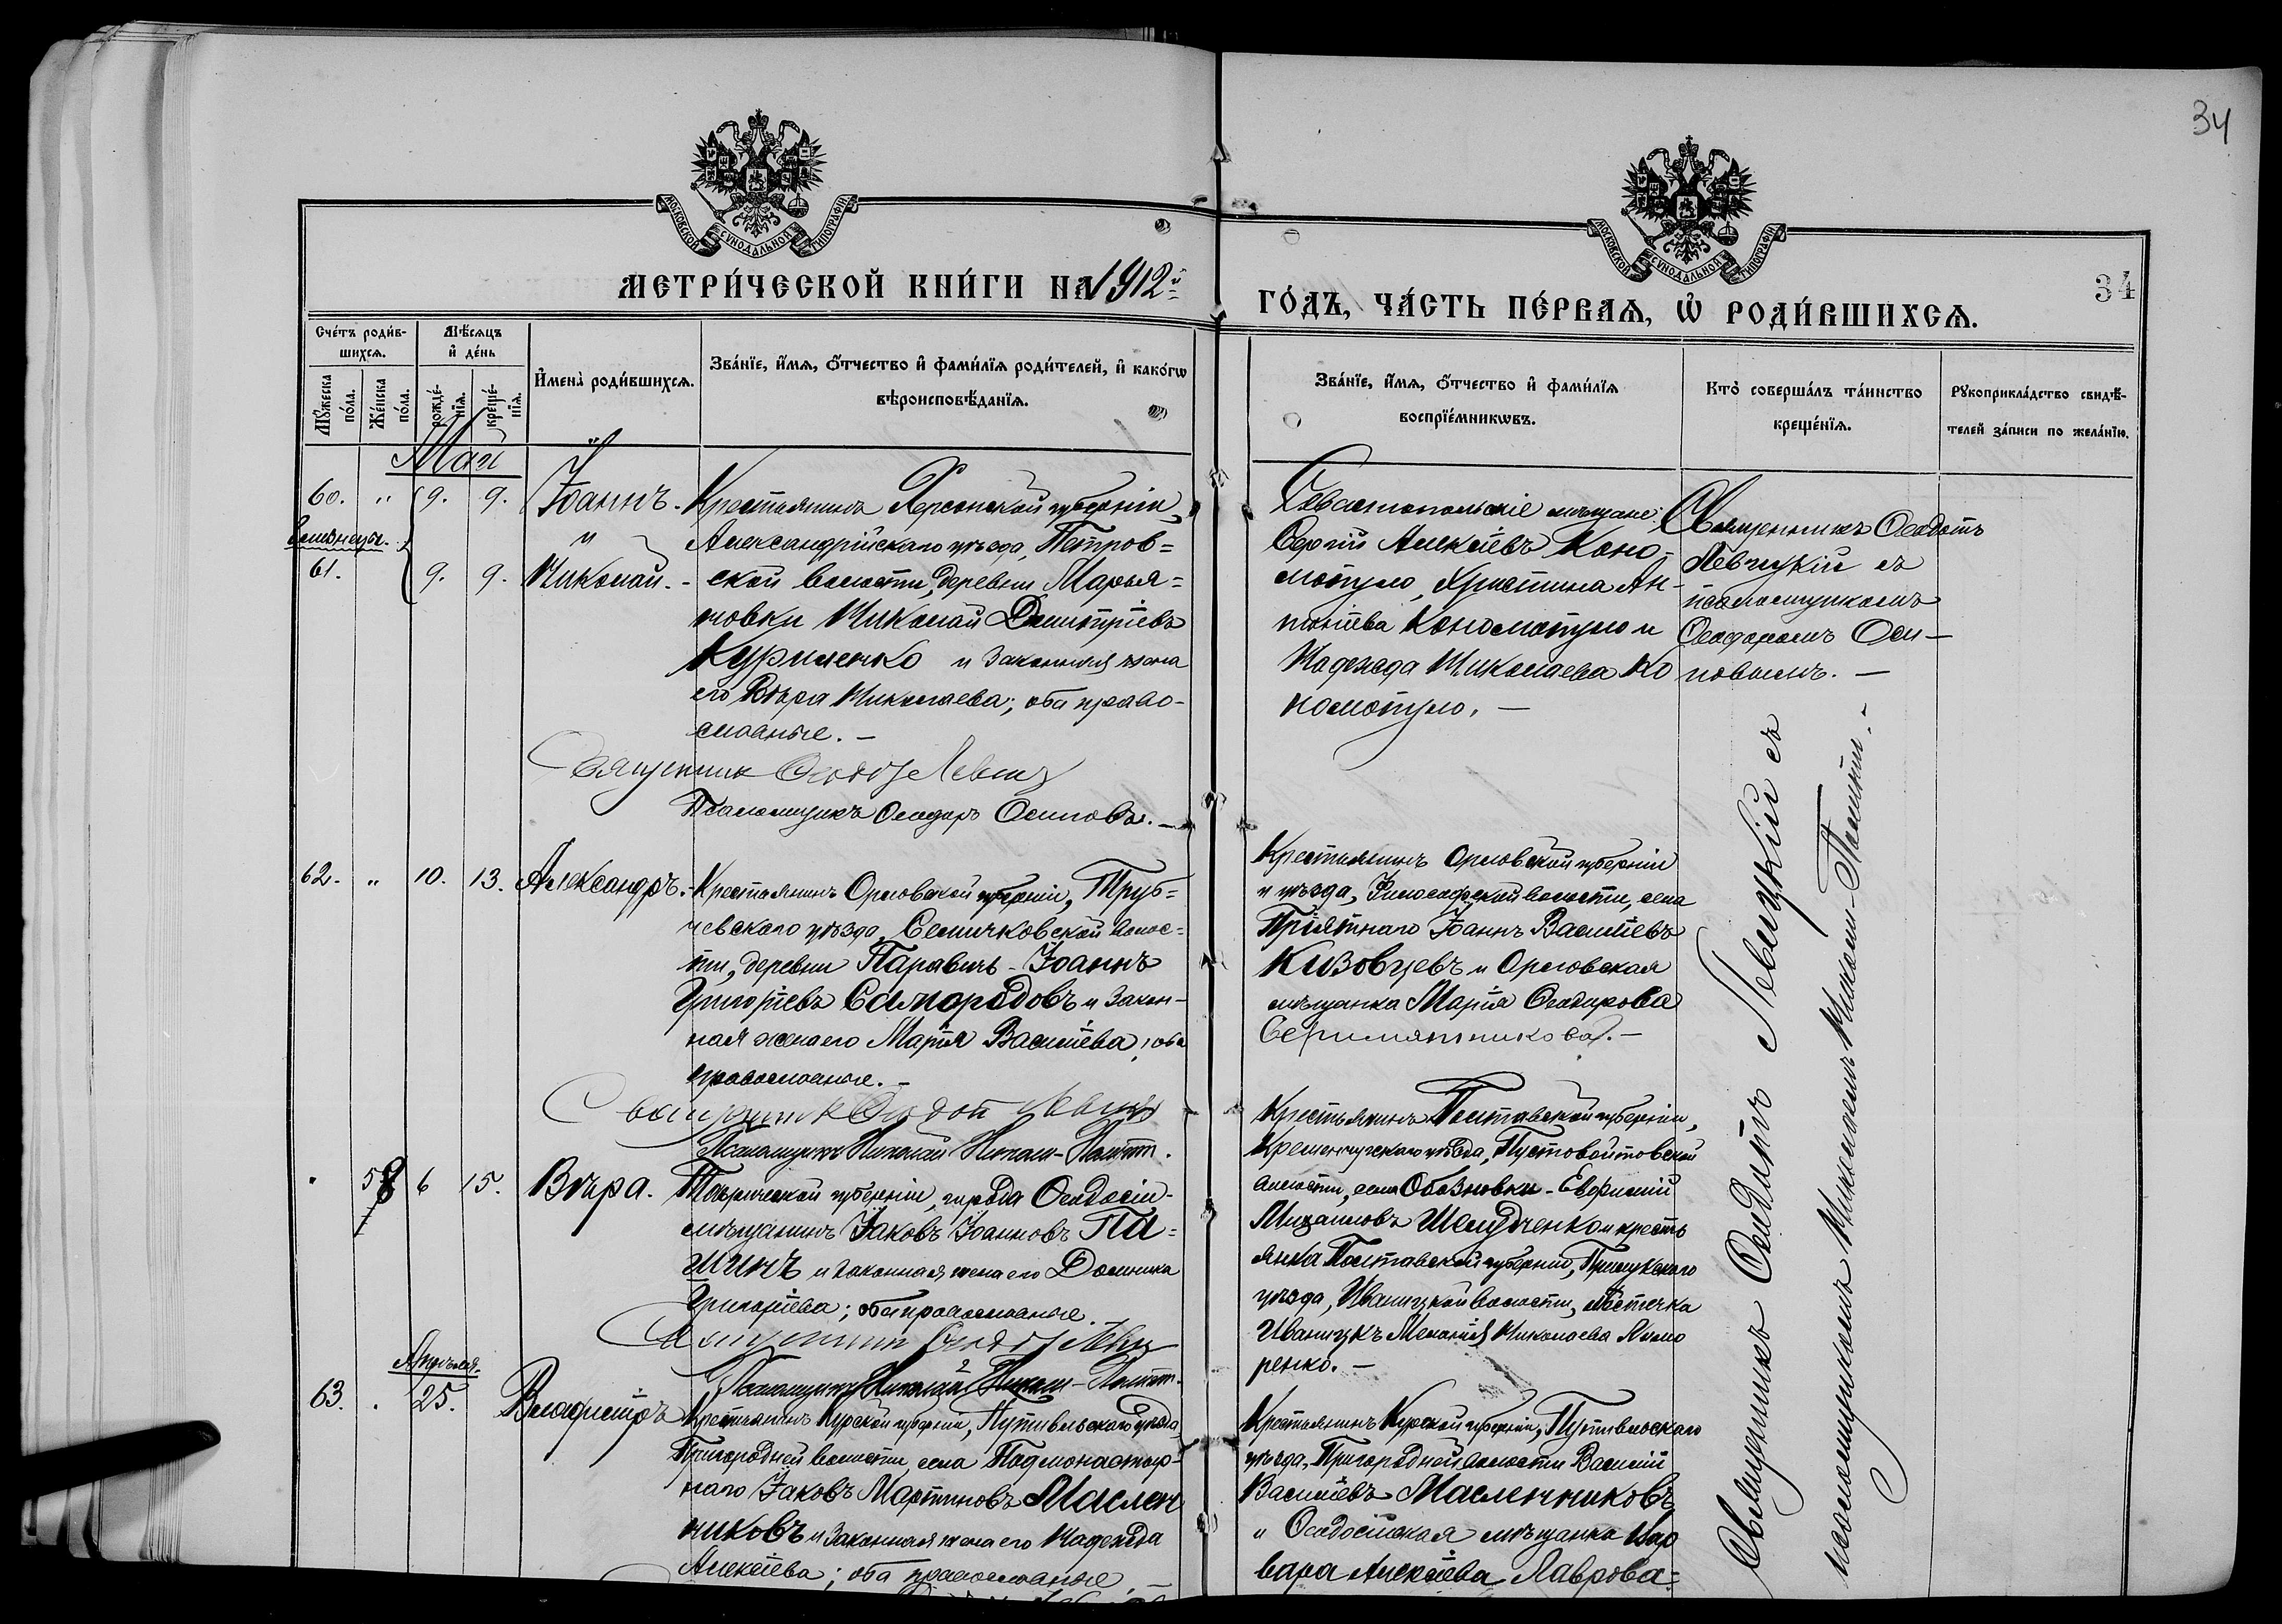 34
34
МОСКОВСКОЙ СѴНОДАЛЬНОЙ ТИПОГРАФІИ
МОСКОВСКОЙ СѴНОДАЛЬНОЙ ТИПОГРАФІИ
МЕТРИ́ЧЕСКОЙ КНИ́ГИ НА 1912й
ГО́ДЪ, ЧА́СТЬ ПЕ́РВАЯ, Ѡ҆ РОДИ́ВШИХСЯ.
Сче́тъ роди́в-
шихся.
Мѣ́сяцъ
и҆ де́нь
Мꙋ́жеска
по́ла.
Же́нска
по́ла.
рожде́-
нїя.
креще́-
нїя.
И҆мена̀ роди́вшихся.
Зва́нїе, и҆́мя, ѻ҆́тчество и҆ фами́лїя роди́телей, и҆ како́гѡ
вѣроисповѣ́данїя.
Зва́нїе, и҆́мя, ѻ҆́тчество и҆ фами́лїя
воспрїе́мникѡвъ.
Кто̀ соверша́лъ та́инство
креще́нїя.
Рꙋкоприкла́дство свидѣ́-
телей за́писи по жела́нїю.
Май
60. " 9. 9. Іоаннъ.
Близнецы.
61. 9. 9. Николай.
Крестьянинъ Херсонской губерніи,
Александрійскаго уѣзда, Петров=
ской волости, деревни Марья=
новки Николай Димитріевъ
Куриленко и законная жена
его Вѣра Николаева; оба право-
славные. —
Священник Ѳеодот Левицк
Псаломщикъ Ѳеодоръ Осиповъ. —
Севастопольскіе мѣщане:
Сергій Алексіевъ Коно-
мопуло, Христина Ан-
тоніева Кономопуло и
Надежда Николаева Ко
номопуло. —
Священникъ Ѳеодотъ
Левицкій съ
псаломщикомъ
Ѳеодоромъ Оси-
повымъ. —
62. " 10. 13. Александръ.
Крестьянинъ Орловской губерніи, Труб=
чевскаго уѣзда, Семячковской волос=
ти, деревни Паравичь - Іоаннъ
Григоріевъ Самородовъ и закон-
ная жена его Марія Василіева; оба
православные. —
Священник Ѳеодот Левицк
Псаломщикъ Николай
Крестьянинъ Орловской губерніи
и уѣзда, Философской волости, села
Пріятнаго Іоаннъ Василіевъ
Кизовцевъ и Орловская
мѣщанка Марія Ѳеодорова
58 6 15. Вѣра.
Таврической губерніи, города Ѳеодосіи-
мѣщанинъ Іаковъ Іоанновъ Па=
шинъ и законная жена его Домника
Григоріева; оба православные.
Священник Ѳеодот Левиц
Псаломщикъ Николай
Крестьянинъ Полтавской губерніи,
Кременчугскаго уѣзда, Пустовойтовской
волости, села Обозновки - Евфимій
Михаиловъ Шелудченко и кресть
янка Полтавской губерніи, Прилукскаго
уѣзда, Иваницкой волости, мѣстечка
Иваницъ Меланія Николаева
ренко. —
Апрѣля.
63. 25. Владиміръ
Крестьянинъ Курской губерніи, Путивльскаго уѣзда,
Пригородней волости, села Подмонастыр-
наго Іаковъ Мартиновъ Маслен
никовъ и законная жена его Надежда
Алексіева; оба православные. —
Крестьянинъ Курской губерніи, Путивльскаго
уѣзда, Пригородней волости Василій
Василіевъ Масленниковъ
и Ѳеодосійская мѣщанка Вар
вара Алексіева Лаврова=
Священникъ Ѳеодотъ Левицкій съ
псаломщикомъ Николаемъ